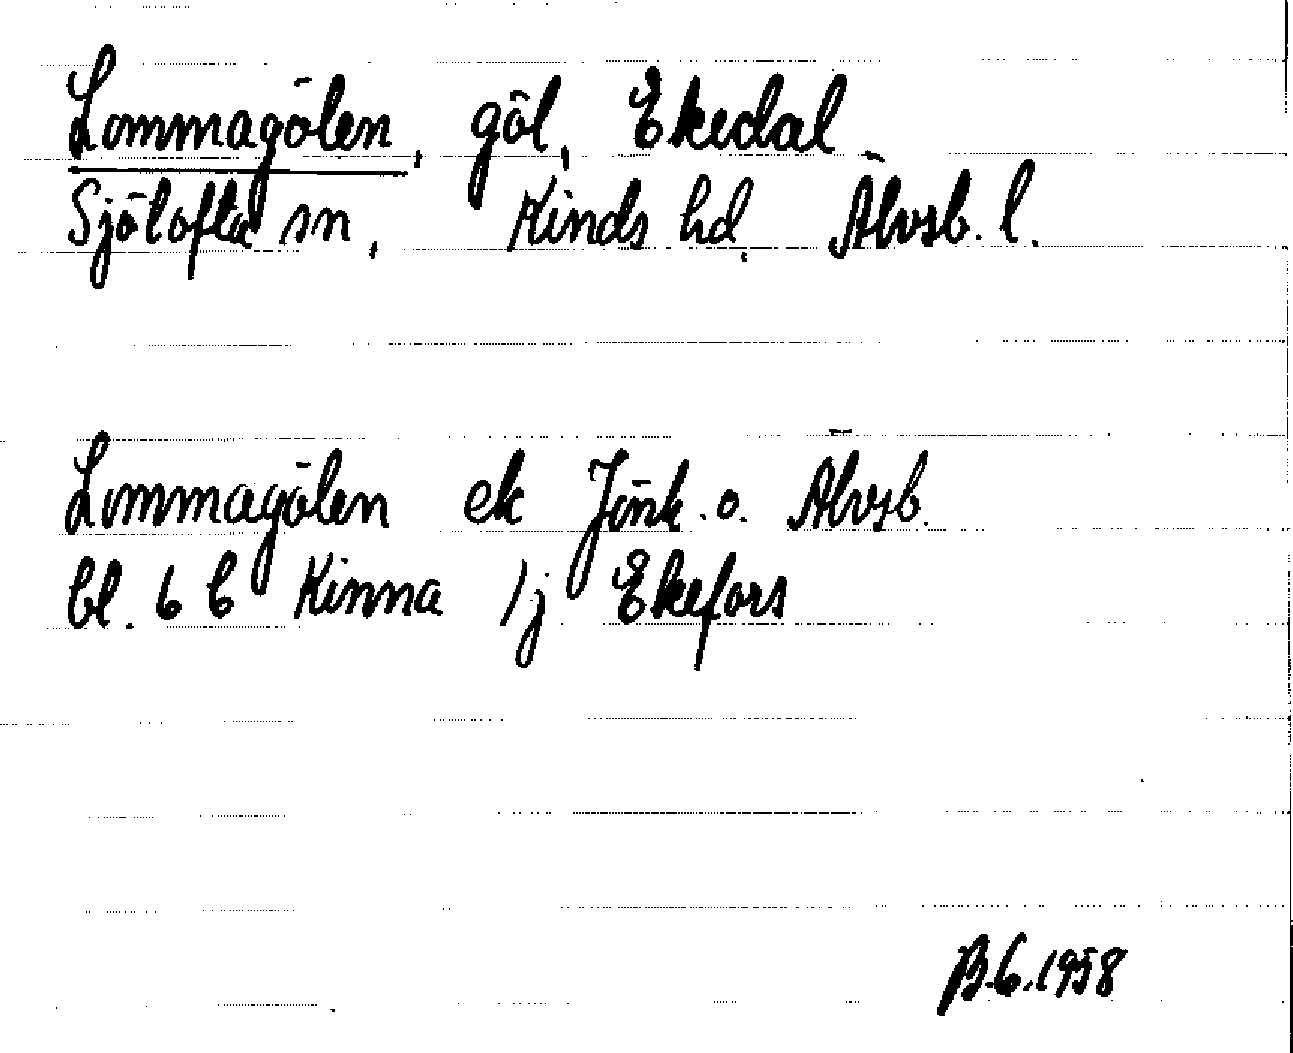 Lommagölen, göl, Ekedal
Sjötofta sn, Kinds hd, Älvsb. l.
Lommagölen ek Jönk. o. Älvsb.
bl. 6 C Kinna 1j Ekefors
B.G. 1958